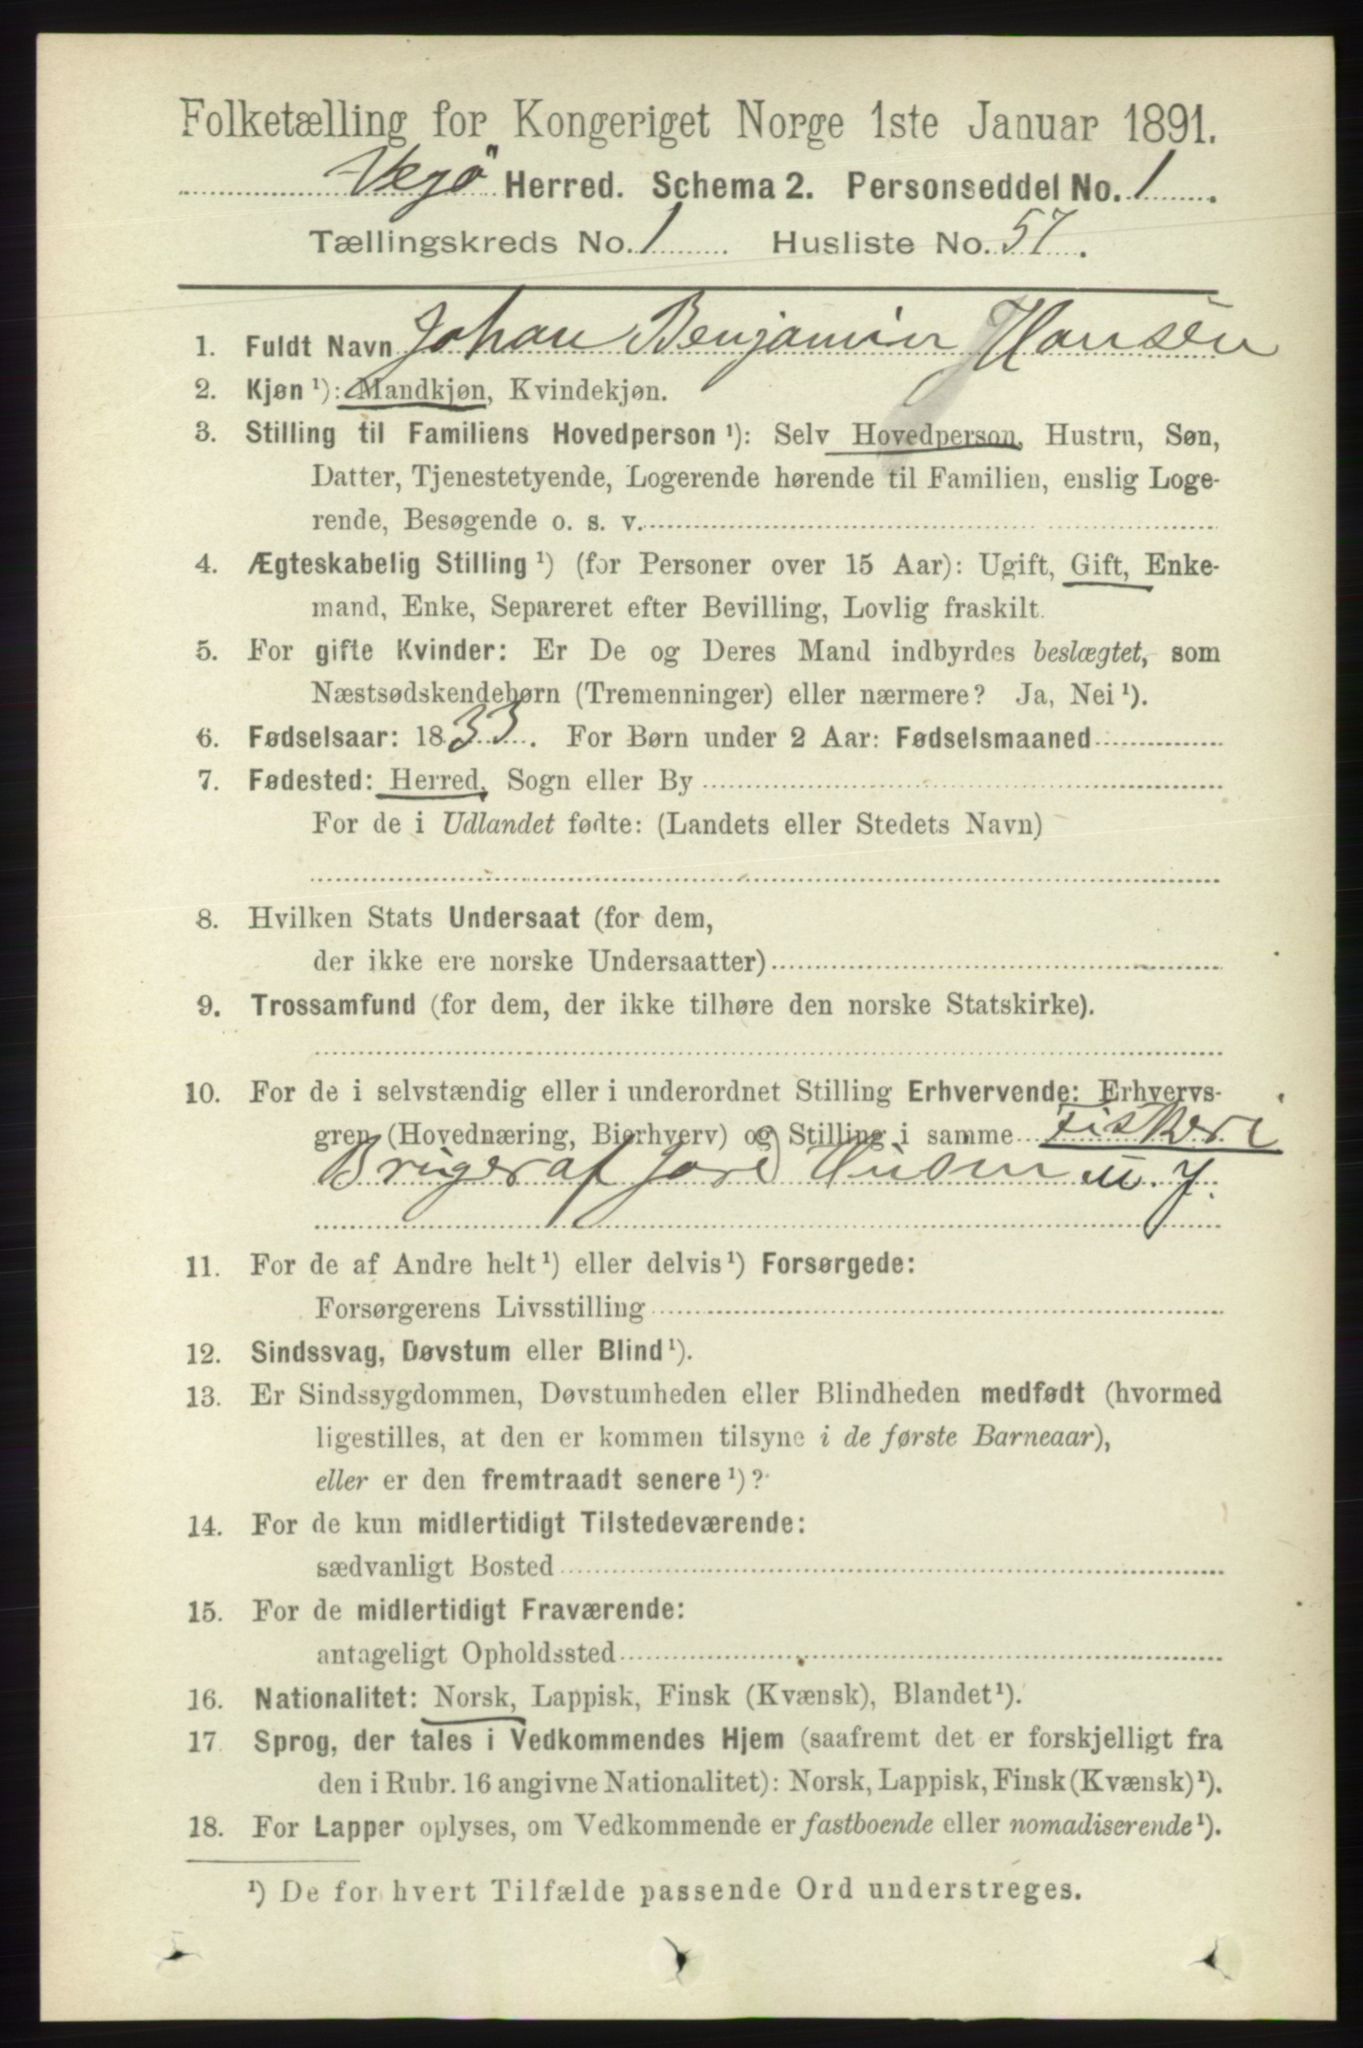 Folketælling for Kongeriget Norge 1ste Januar 1891.
Vegö Herred. Schema 2. Personseddel No. 1.
Tællingskreds No. 1. Husliste No. 57.
1. Fuldt Navn Johan Benjamin Hansen
2. Kjøn ¹): Mandkjøn, Kvindekjøn.
3. Stilling til Familiens Hovedperson ¹): Selv Hovedperson, Hustru, Søn,
Datter, Tjenestetyende, Logerende hørende til Familien, enslig Loge-
rende, Besøgende o. s. v.
4. Ægteskabelig Stilling ¹) (for Personer over 15 Aar): Ugift, Gift, Enke-
mand, Enke, Separeret efter Bevilling, Lovlig fraskilt.
5. For gifte Kvinder: Er De og Deres Mand indbyrdes beslægtet, som
Næstsødskendebørn (Tremenninger) eller nærmere? Ja, Nei ¹).
6. Fødselsaar: 1833. For Børn under 2 Aar: Fødselsmaaned
7. Fødested: Herred, Sogn eller By
For de i Udlandet fødte: (Landets eller Stedets Navn)
8. Hvilken Stats Undersaat (for dem,
der ikke ere norske Undersaatter)
9. Trossamfund (for dem, der ikke tilhøre den norske Statskirke).
10. For de i selvstændig eller i underordnet Stilling Erhvervende: Erhvervs-
gren (Hovednæring, Bierhverv) og Stilling i samme Fiskeri
Bruger af Jord
11. For de af Andre helt ¹) eller delvis ¹) Forsørgede:
Forsørgerens Livsstilling
12. Sindssvag, Døvstum eller Blind ¹).
13. Er Sindssygdommen, Døvstumheden eller Blindheden medfødt (hvormed
ligestilles, at den er kommen tilsyne i de første Barneaar),
eller er den fremtraadt senere ¹)?
14. For de kun midlertidigt Tilstedeværende:
sædvanligt Bosted
15. For de midlertidigt Fraværende:
antageligt Opholdssted
16. Nationalitet: Norsk, Lappisk, Finsk (Kvænsk), Blandet ¹).
17. Sprog, der tales i Vedkommendes Hjem (saafremt det er forskjelligt fra
den i Rubr. 16 angivne Nationalitet): Norsk, Lappisk, Finsk (Kvænsk) ¹).
18. For Lapper oplyses, om Vedkommende er fastboende eller nomadiserende ¹).
¹) De for hvert Tilfælde passende Ord understreges.